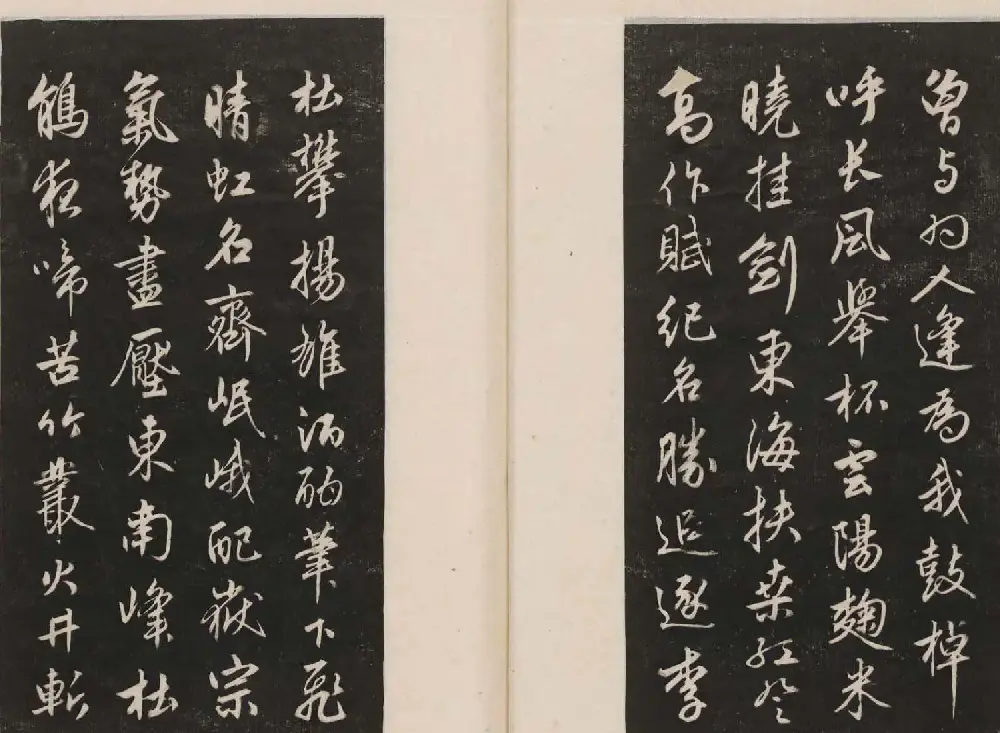 曾与为人逢为我鼓棹
呼长风举杯云阳麹米
晓挂剑东海扶桑红登
高作赋纪名胜追逐李
杜攀扬雄酒酣笔下飞
晴虹名齐岷峨配岳宗
氣勢盡壓東南峰杜
鵑夜啼苦竹叢火井斬